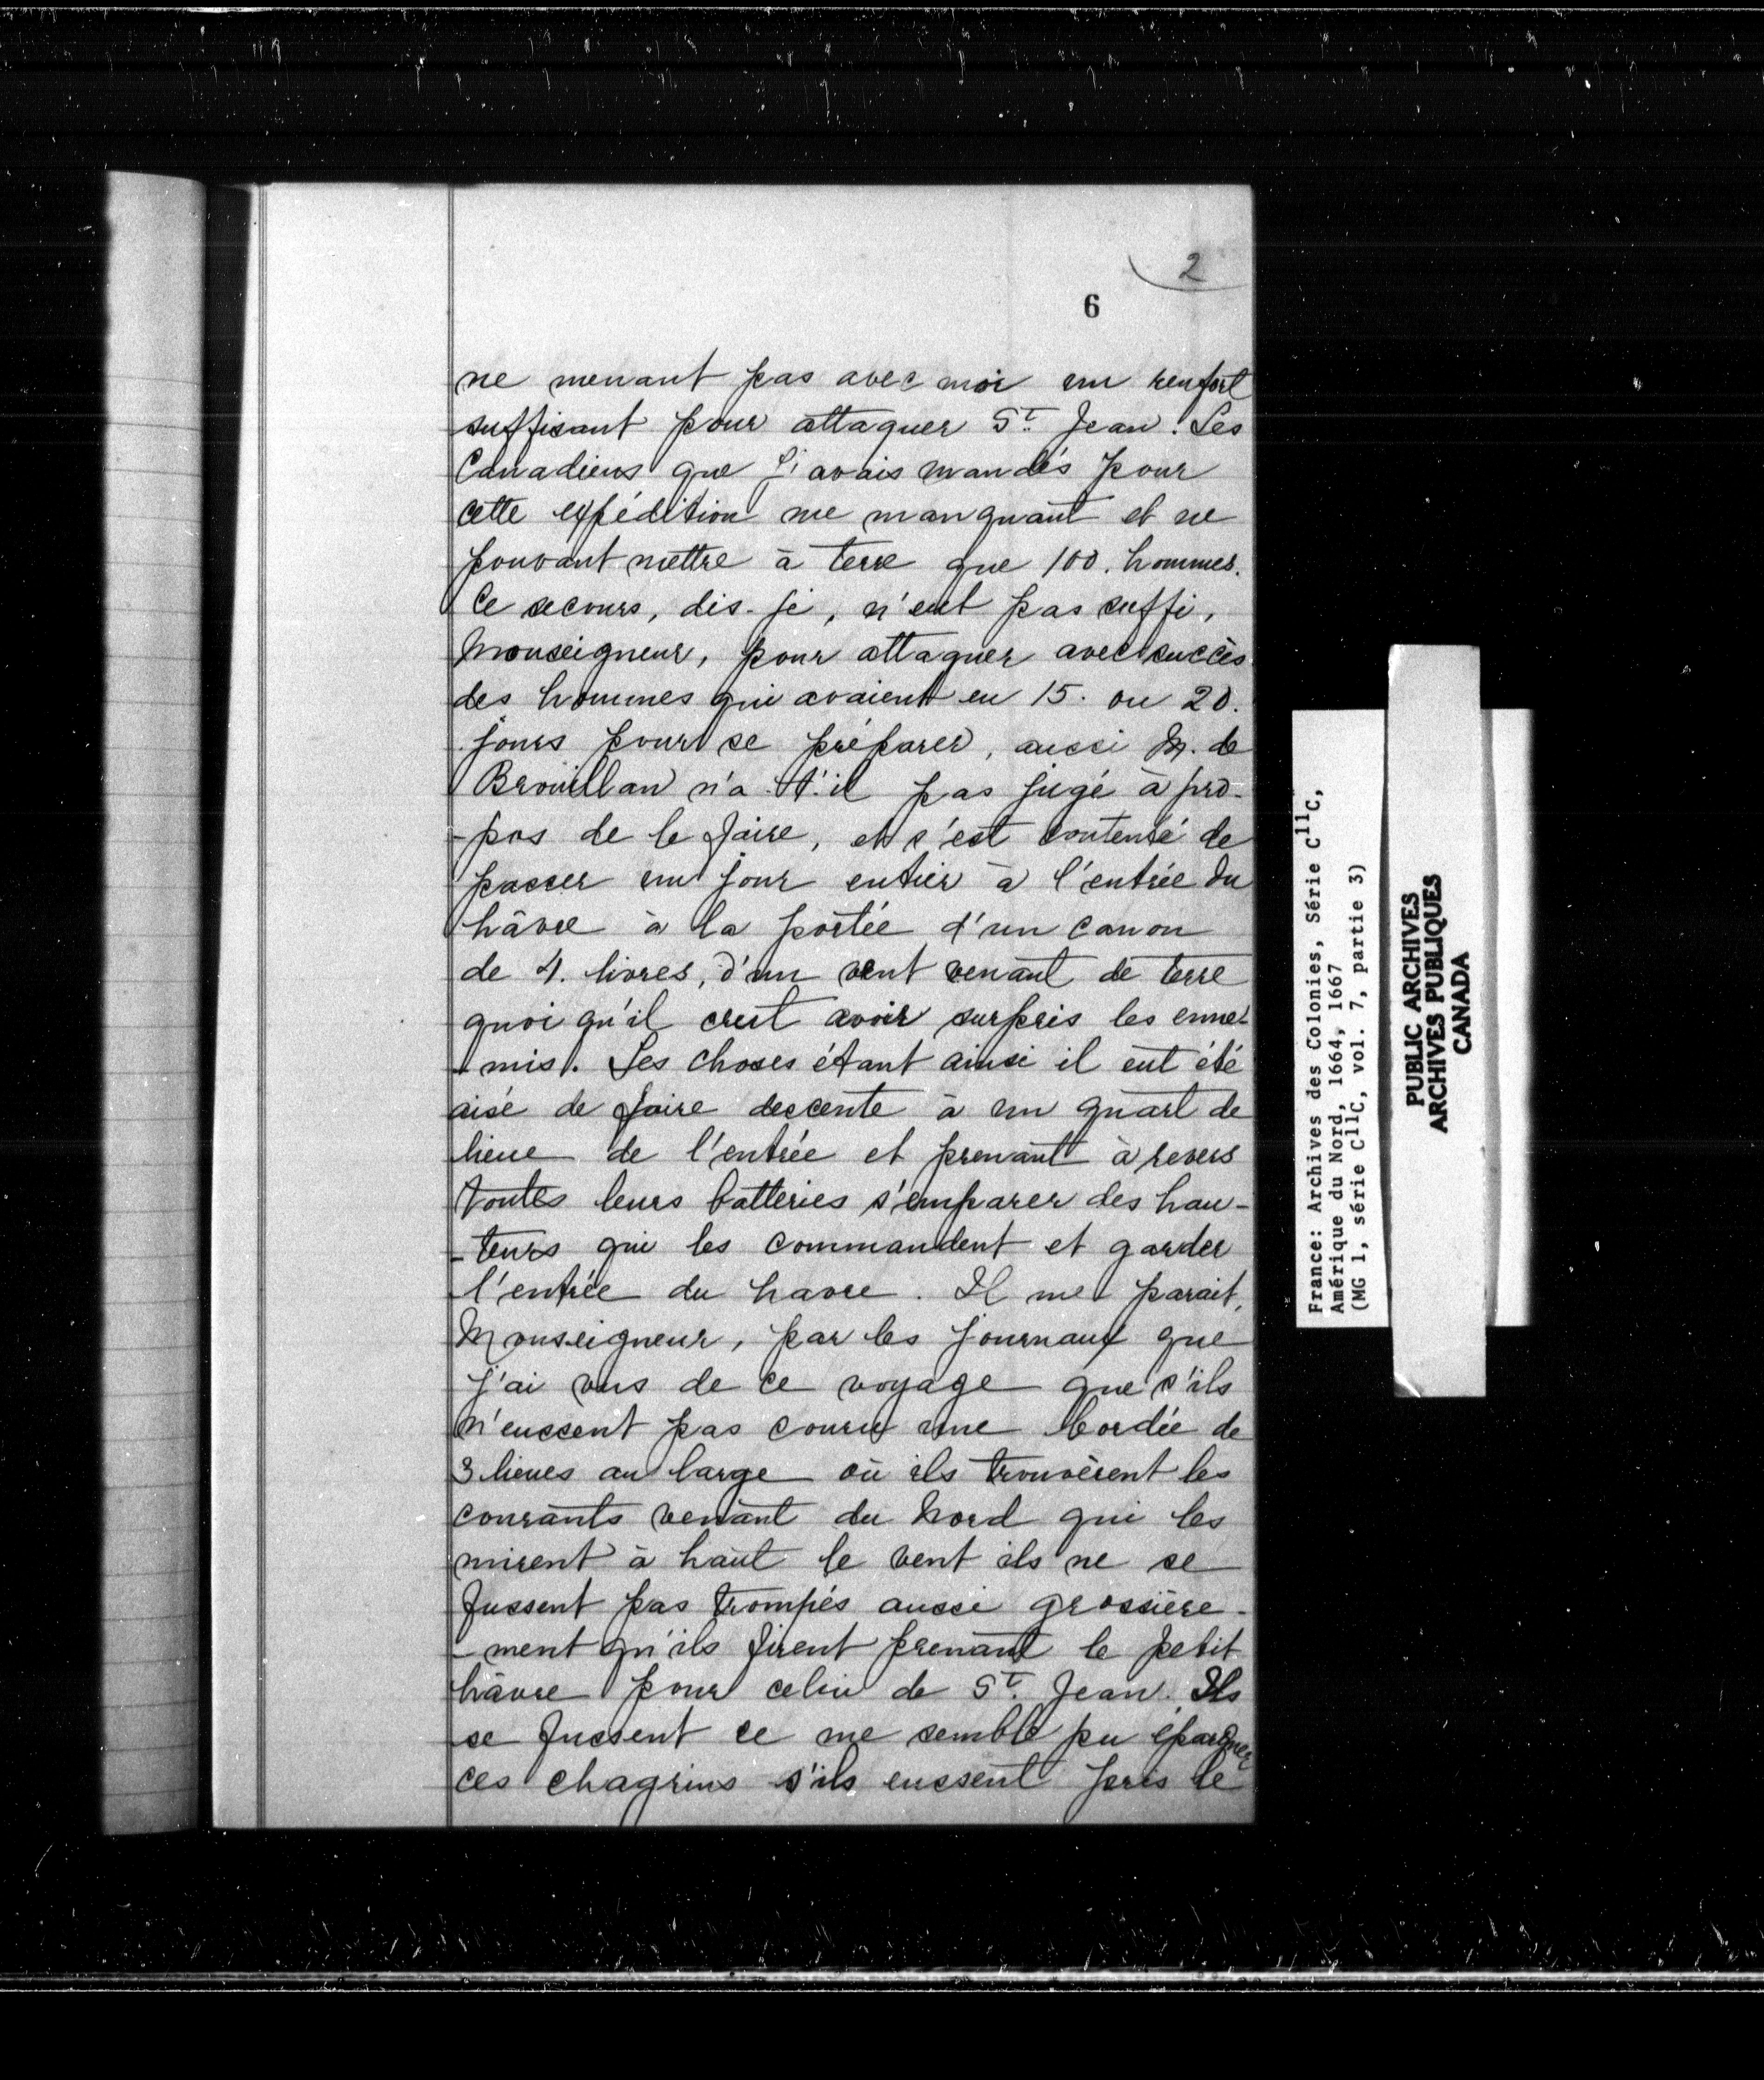 2
6
ne menant pas avec moi un renfort
suffisant pour attaquer St. Jean. Les
Canadiens que j'avais mandés pour
cette expédition me manquant et ne
pouvant mettre à terre que 100. hommes.
Ce secours, dis-je, n'eut pas suffi,
Monseigneur, pour attaquer avec succès
des hommes qui avaient eu 15. ou 20.
jours pour se préparer, aussi M. de
Brouillan n'a-t'il pas jugé à pro-
-pos de le faire, et s'est contenté de
passer un jour entier à l'entrée du
hâvre à la portée d'un canon
de 4. livres, d'un vent venant de terre
quoi qu'il crut avoir surpris les enne-
-mis. Les choses étant ainsi il eut été
aisé de faire descente à un quart de
lieue de l'entrée et prenant à revers
toutes leurs batteries s'emparer des hau-
-teurs qui les commandent et garder
l'entrée du havre. Il me parait,
Monseigneur, par les journaux que
j'ai vus de ce voyage que s'ils
n'eussent pas couru une bordée de
3 lieues au large où ils trouvèrent les
courants venant du Nord qui les
mirent à haut le vent ils ne se
fussent pas trompés aussi grossière-
-ment qu'ils firent prenant le petit
hâvre pour celui de St. Jean. Ils
se fussent ce me semble pu épargner
ces chagrins s'ils eussent pris le
France: Archives des Colonies, Série C11C,
Amérique du Nord, 1664, 1667
(MG 1, série C11C, vol. 7, partie 3)
PUBLIC ARCHIVES
ARCHIVES PUBLIQUES
CANADA